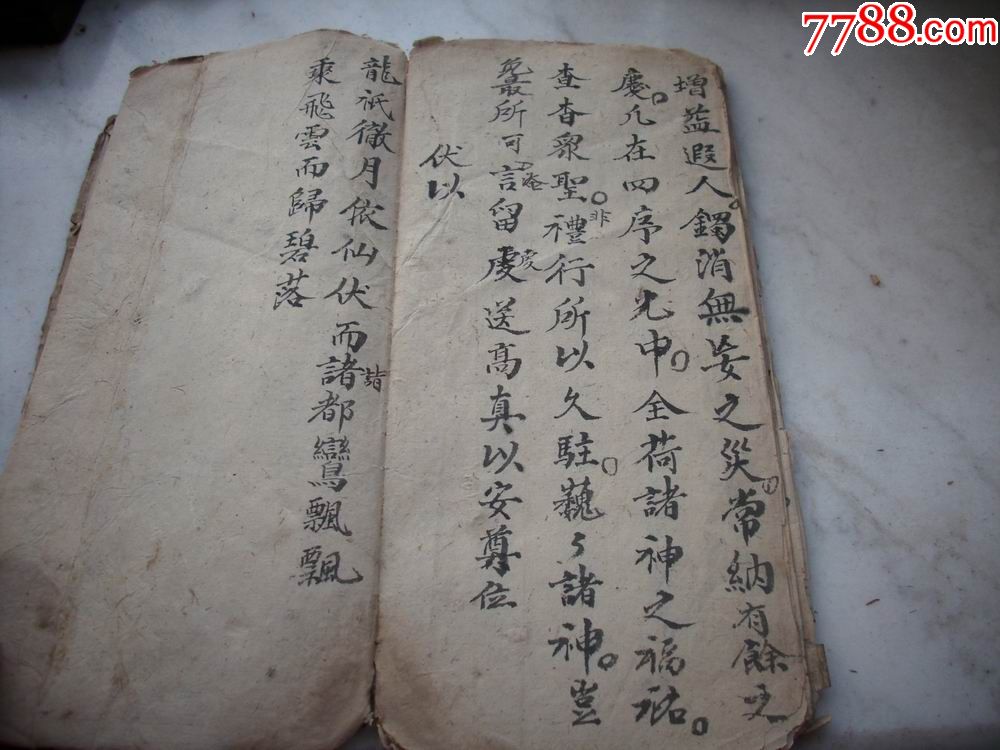 7788.com
增益遐人。鐲消無妄之災。常納有餘之
慶。凡在四序之光中。全荷諸神之福祐。
查杳眾聖。非禮行所以久駐。巍々諸神。豈
所可言留虔虔送高真以安尊位
伏以
龍祇徹月依仙伏而諸詣都鸞飄飄
乘飛雲而歸碧落